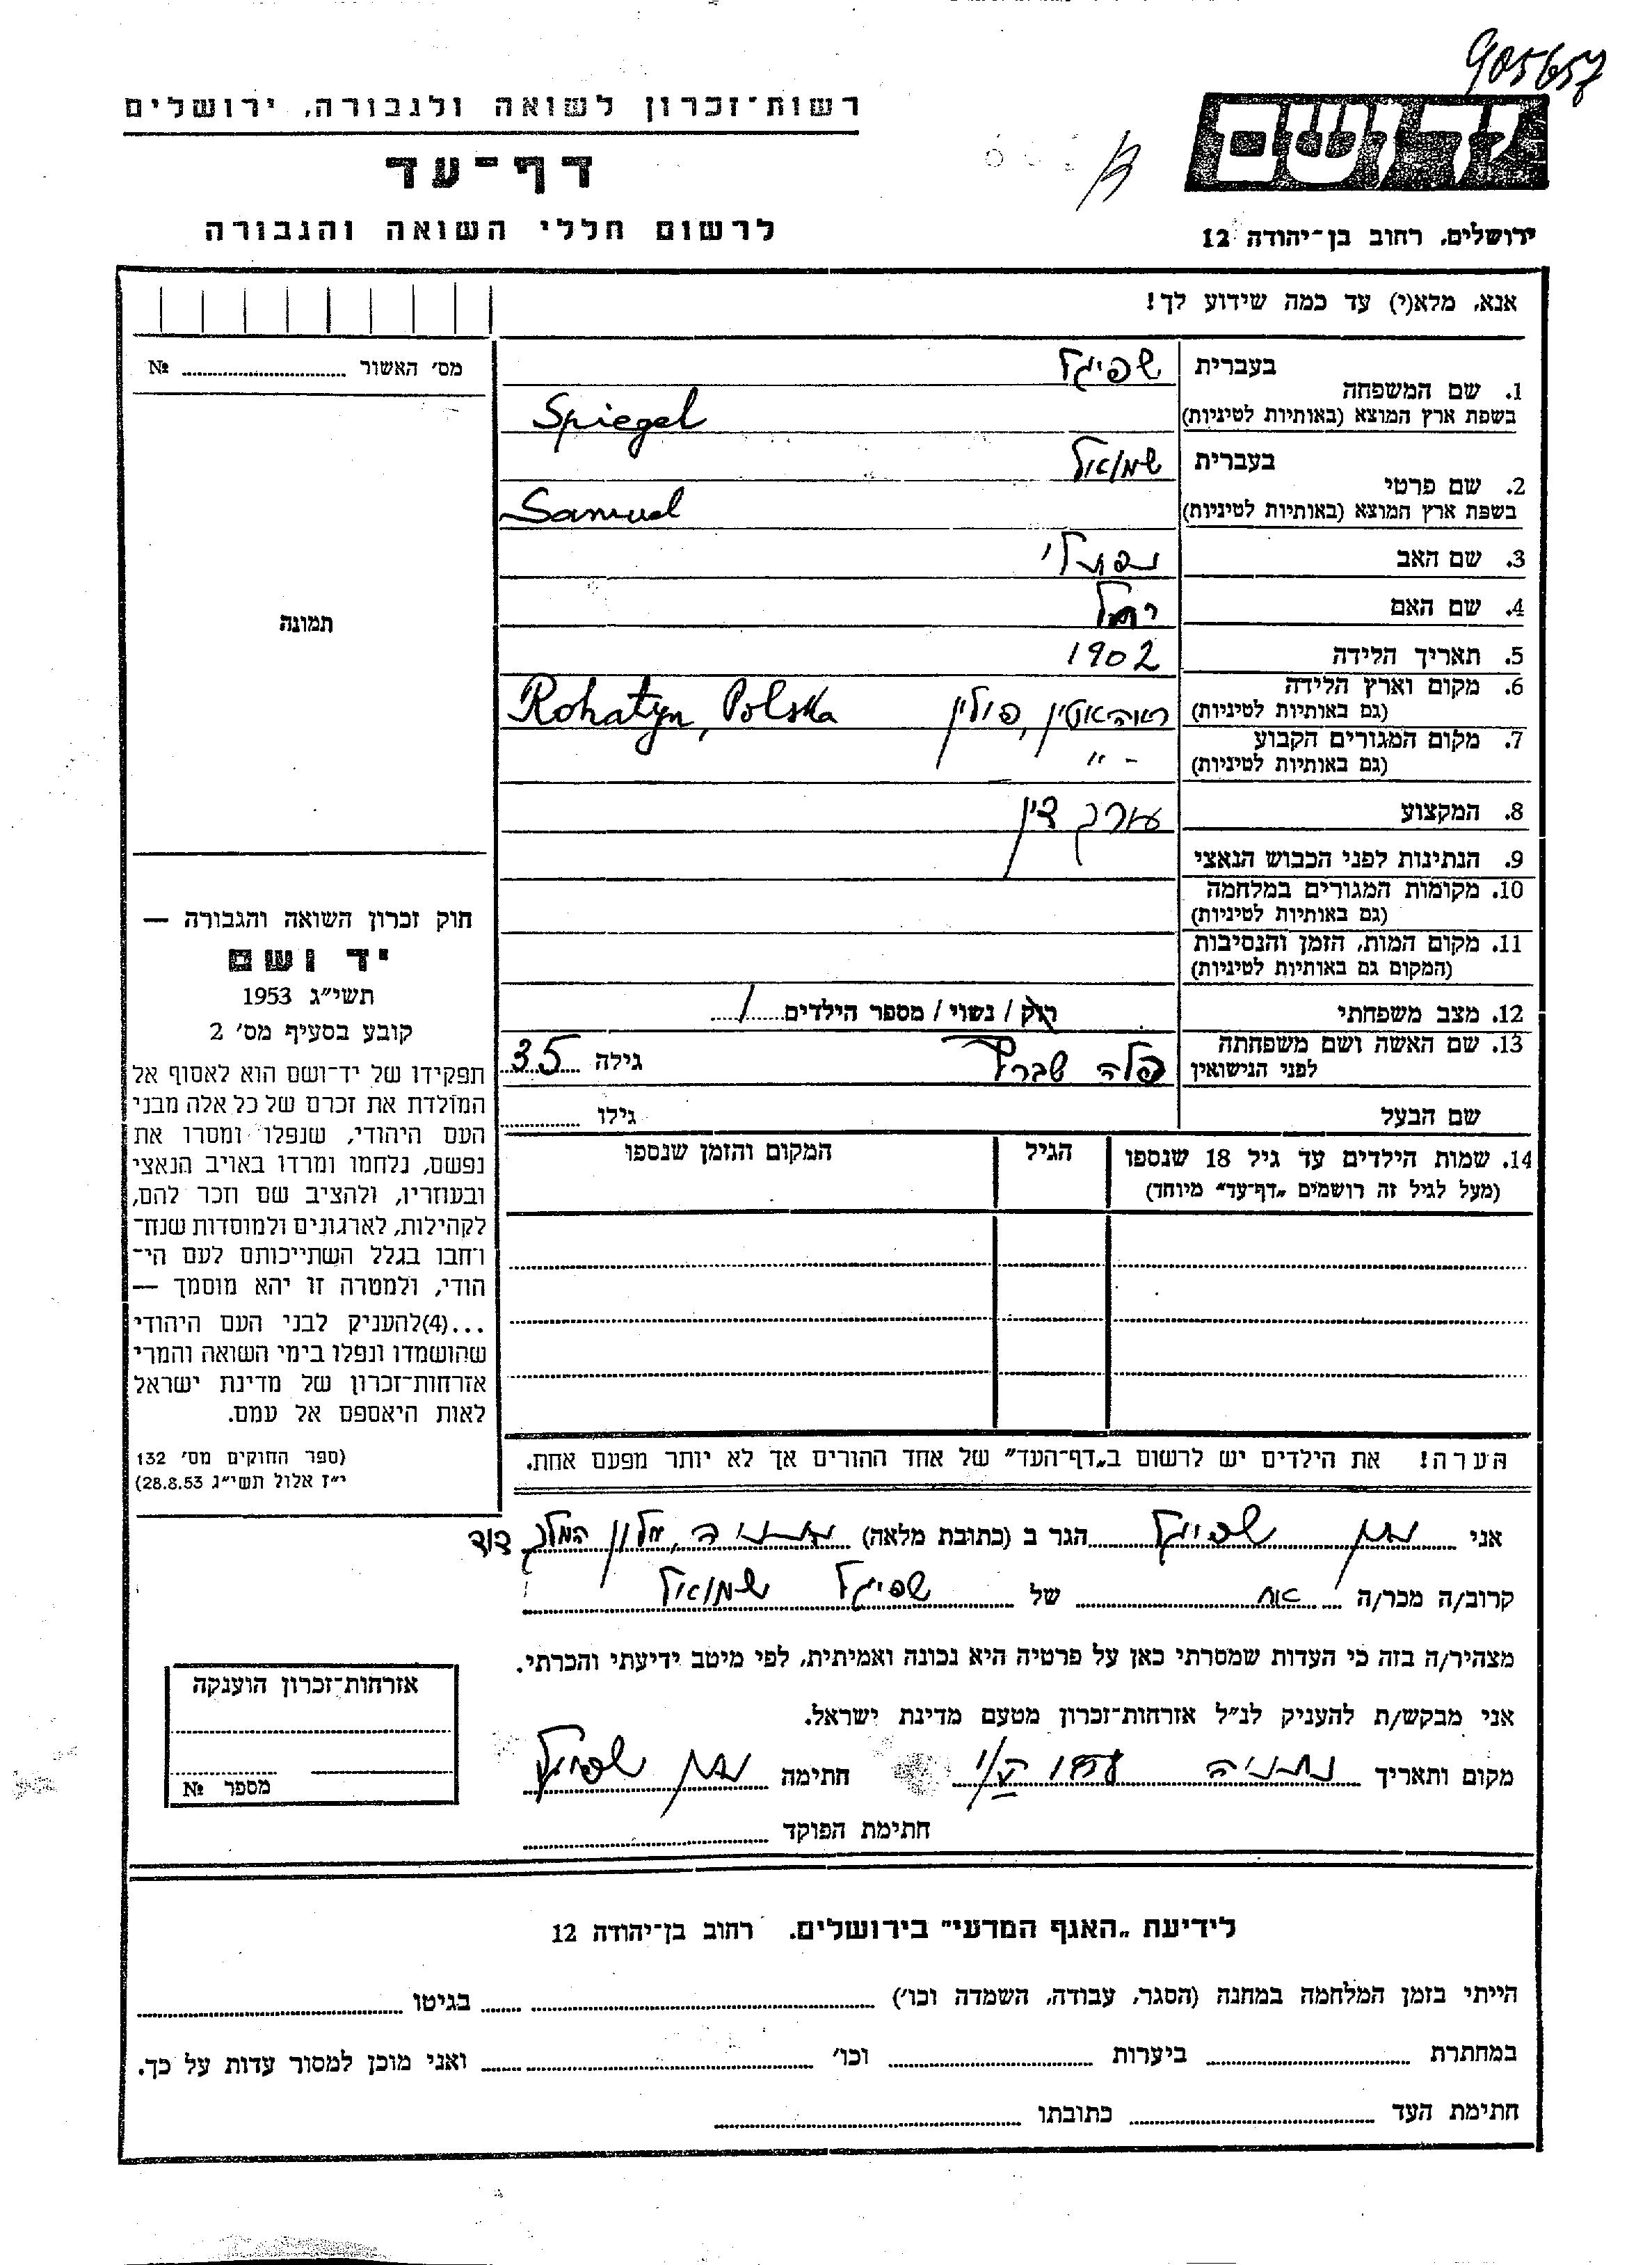 905657
רשות-זכרון לשואה ולגבורה, ירושלים
דף-עד
לרשום חללי השואה והגבורה
ידושם
ירושלים, רחוב בן-יהודה 12
אנא, מלא(י) עד כמה שידוע לך!
מס׳ האשור ............ №
תמונה
1. שם המשפחה בעברית שפיגל
בשפת ארץ המוצא (באותיות לטיניות) Spiegel
2. שם פרטי בעברית שמואל
בשפת ארץ המוצא (באותיות לטיניות) Samuel
3. שם האב נפתלי
4. שם האם רחל
5. תאריך הלידה 1902
6. מקום וארץ הלידה (גם באותיות לטיניות) רוהאטין, פולין Rohatyn, Polska
7. מקום המגורים הקבוע (גם באותיות לטיניות) - " -
8. המקצוע עורך דין
9. הנתינות לפני הכבוש הנאצי
10. מקומות המגורים במלחמה (גם באותיות לטיניות)
11. מקום המות, הזמן והנסיבות (המקום גם באותיות לטיניות)
12. מצב משפחתי רוק / נשוי / מספר הילדים 1
13. שם האשה ושם משפחתה לפני הנישואין פלה גילה 35
שם הבעל גילו
14. שמות הילדים עד גיל 18 שנספו (מעל לגיל זה רושמים „דף-עד" מיוחד) הגיל המקום והזמן שנספו
חוק זכרון השואה והגבורה —
יד ושם
תשי"ג 1953
קובע בסעיף מס׳ 2
תפקידו של יד-ושם הוא לאסוף אל
המולדת את זכרם של כל אלה מבני
העם היהודי, שנפלו ומסרו את
נפשם, נלחמו ומרדו באויב הנאצי
ובעוזריו, ולהציב שם וזכר להם,
לקהילות, לארגונים ולמוסדות שנח-
רחבו בגלל השתייכותם לעם הי-
הודי, ולמטרה זו יהא מוסמך —
...(4)להעניק לבני העם היהודי
שהושמדו ונפלו בימי השואה והמרי
אזרחות-זכרון של מדינת ישראל
לאות היאספם אל עמם.
(ספר החוקים מס׳ 132
י"ז אלול תשי"ג 28.8.53)
הערה! את הילדים יש לרשום ב„דף-העד" של אחד ההורים אך לא יותר מפעם אחת.
אני נתן שפיגל הגר ב (כתובת מלאה) נתניה, מלון המלך דוד
קרוב/ה מכר/ה אח של שפיגל שמואל
מצהיר/ה בזה כי העדות שמסרתי כאן על פרטיה היא נכונה ואמיתית, לפי מיטב ידיעתי והכרתי.
אני מבקש/ת להעניק לנ"ל אזרחות-זכרון מטעם מדינת ישראל.
מקום ותאריך נתניה חתימה נתן שפיגל
חתימת הפוקד
אזרחות-זכרון הוענקה
מספר №
לידיעת „האגף המדעי" בירושלים. רחוב בן-יהודה 12
הייתי בזמן המלחמה במחנה (הסגר, עבודה, השמדה וכו׳) בגיטו
במחתרת ביערות וכו׳ ואני מוכן למסור עדות על כך.
חתימת העד כתובתו